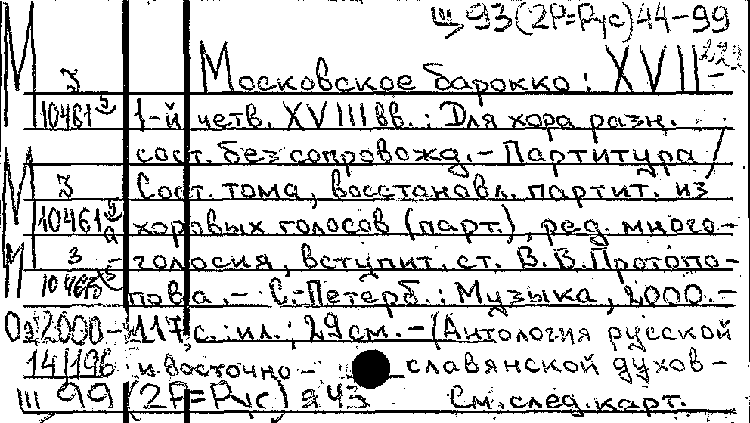 Щ 93(2Р=Рус)44-99
М З Московское барокко: XVII -
10461 1-й четв. XVIII вв.: Для хора разн.
сост. без сопровожд. - Партитура /
М З Сост. тома, восстановл. партит. из
10461 хоровых голосов (парт.), ред. много-
М З голосия, вступит. ст. В.В.Протопо-
попова. - С.-Петерб.: Музыка, 2000. -
2000- 117 с.: ил.; 29 см. - (Антология русской
14/196 и восточно- славянской духов-
Щ 99 (2Р=Рус) я 43 См. след. карт.